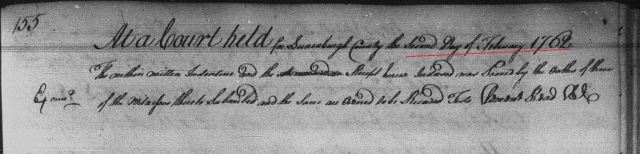 155
At a Court held for Lunenburgh County the Second Day of February 1762
The within written Indenture and the Receipt hereon Indorsed was Proved by the Oaths of three
of the witnesses thereto Subscribed and the Same are ordered to be Recorded Teste